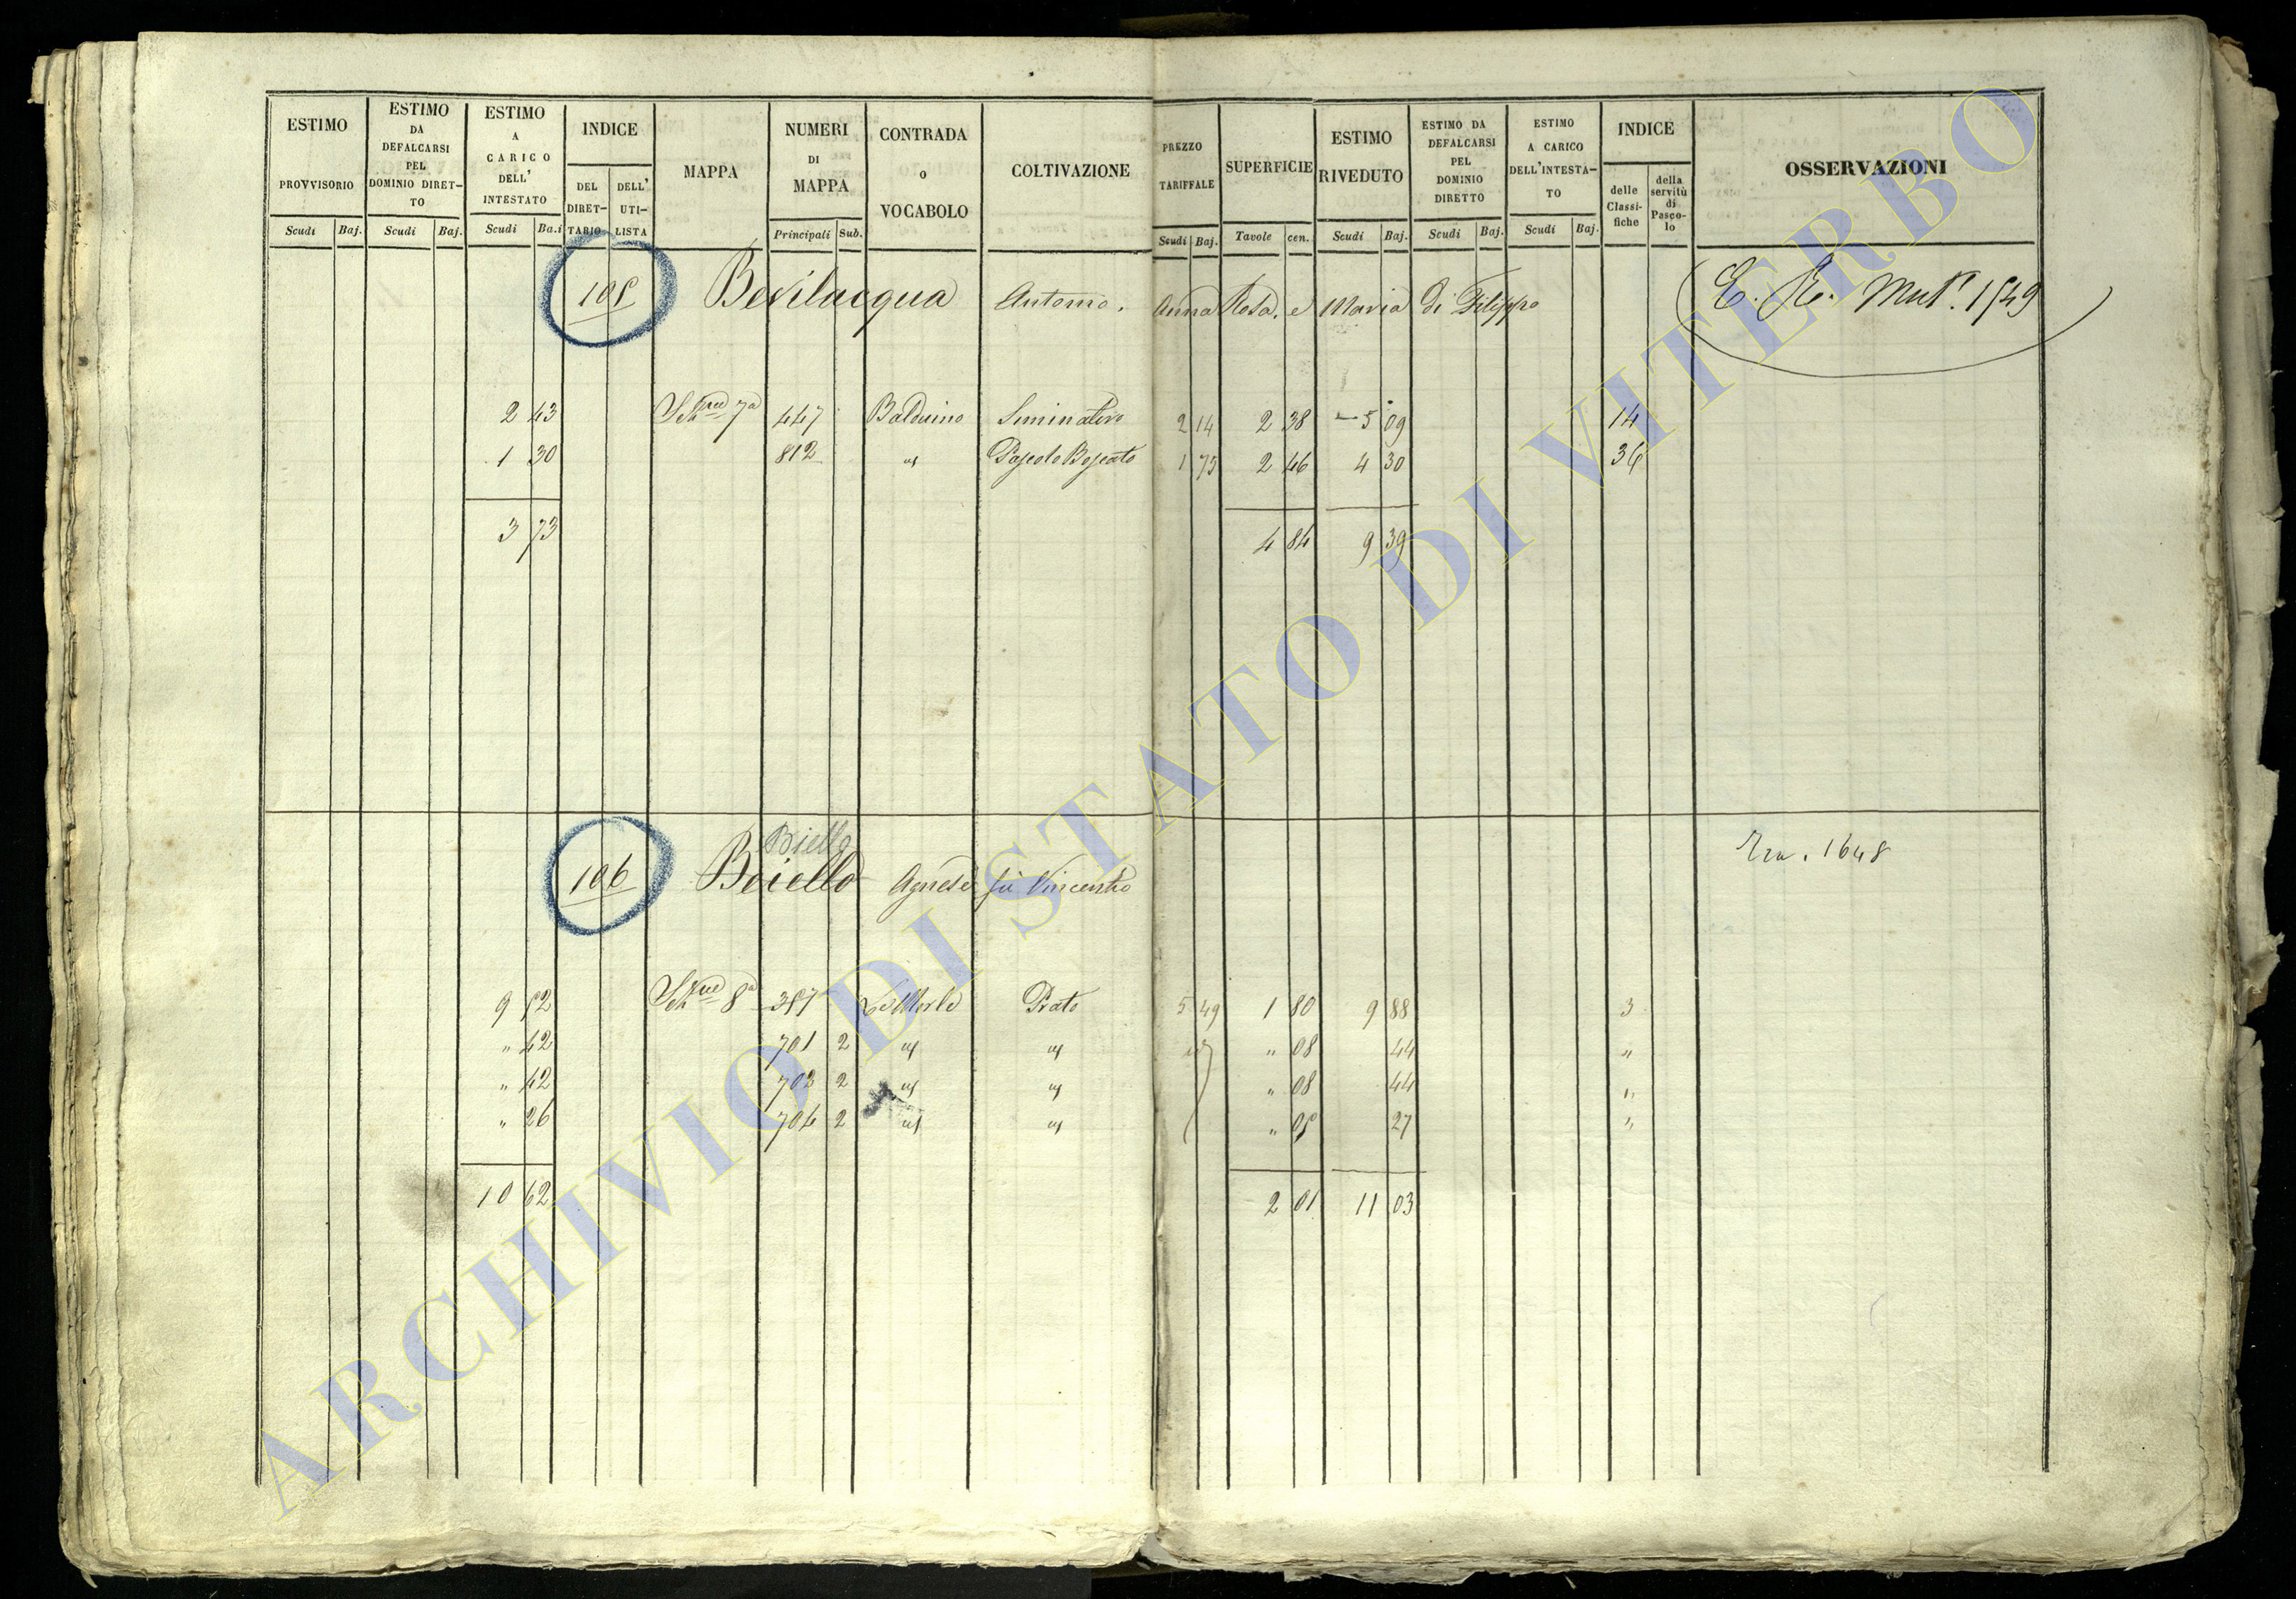 ESTIMO PROVVISORIO Scudi Baj.
ESTIMO DA DEFALCARSI PEL DOMINIO DIRETTO Scudi Baj.
ESTIMO A CARICO DELL' INTESTATO Scudi Ba.i
INDICE DEL DIRETTARIO DELL' UTILISTA
MAPPA
NUMERI DI MAPPA Principali Sub.
CONTRADA O VOCABOLO
COLTIVAZIONE
PREZZO TARIFFALE Scudi Baj.
SUPERFICIE Tavole cen.
ESTIMO RIVEDUTO Scudi Baj.
ESTIMO DA DEFALCARSI PEL DOMINIO DIRETTO Scudi Baj.
ESTIMO A CARICO DELL'INTESTATO Scudi Baj.
INDICE delle Classifiche della servitù di Pascolo
OSSERVAZIONI
105 Bevilacqua Antonio, Anna Rosa, e Maria di Filippo Mut. 1549
2 43 7a 447 Balduino Seminativo 2 14 2 38 5 09 14
1 30 812 " Pascolo Boscato 1 75 2 46 4 30 36
3 73 4 84 9 39
Biello
106 Boiello Agnese fù Vincenzo 1648
9 52 8a 357 Prato 5 49 1 80 9 88 3
" 42 701 2 " " " " 08 44 "
" 42 702 2 " " " 08 44 "
" 26 704 2 " " " 05 27 "
10 62 2 01 11 03
ARCHIVIO DI STATO DI VITERBO